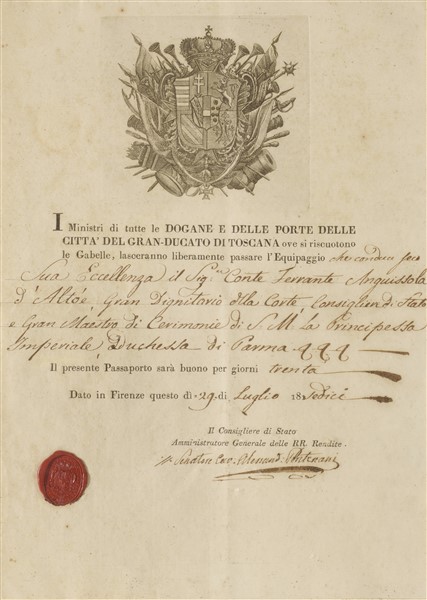 I Ministri di tutte le DOGANE E DELLE PORTE DELLE
CITTA' DEL GRAN-DUCATO DI TOSCANA ove si riscuotono
le Gabelle, lasceranno liberamente passare l'Equipaggio che conduce seco
Sua Eccellenza il Sig. Conte Ferrante Anguissola
d'Altoè Gran Dignitario della Corte, Consigliere di Stato
e Gran Maestro di Cerimonie di S. M. la Principessa
Imperiale Duchessa di Parma
Il presente Passaporto sarà buono per giorni trenta
Dato in Firenze questo dì 29. di Luglio 18 sedici
Il Consigliere di Stato
Amministratore Generale delle RR. Rendite.
Senatore Cav.